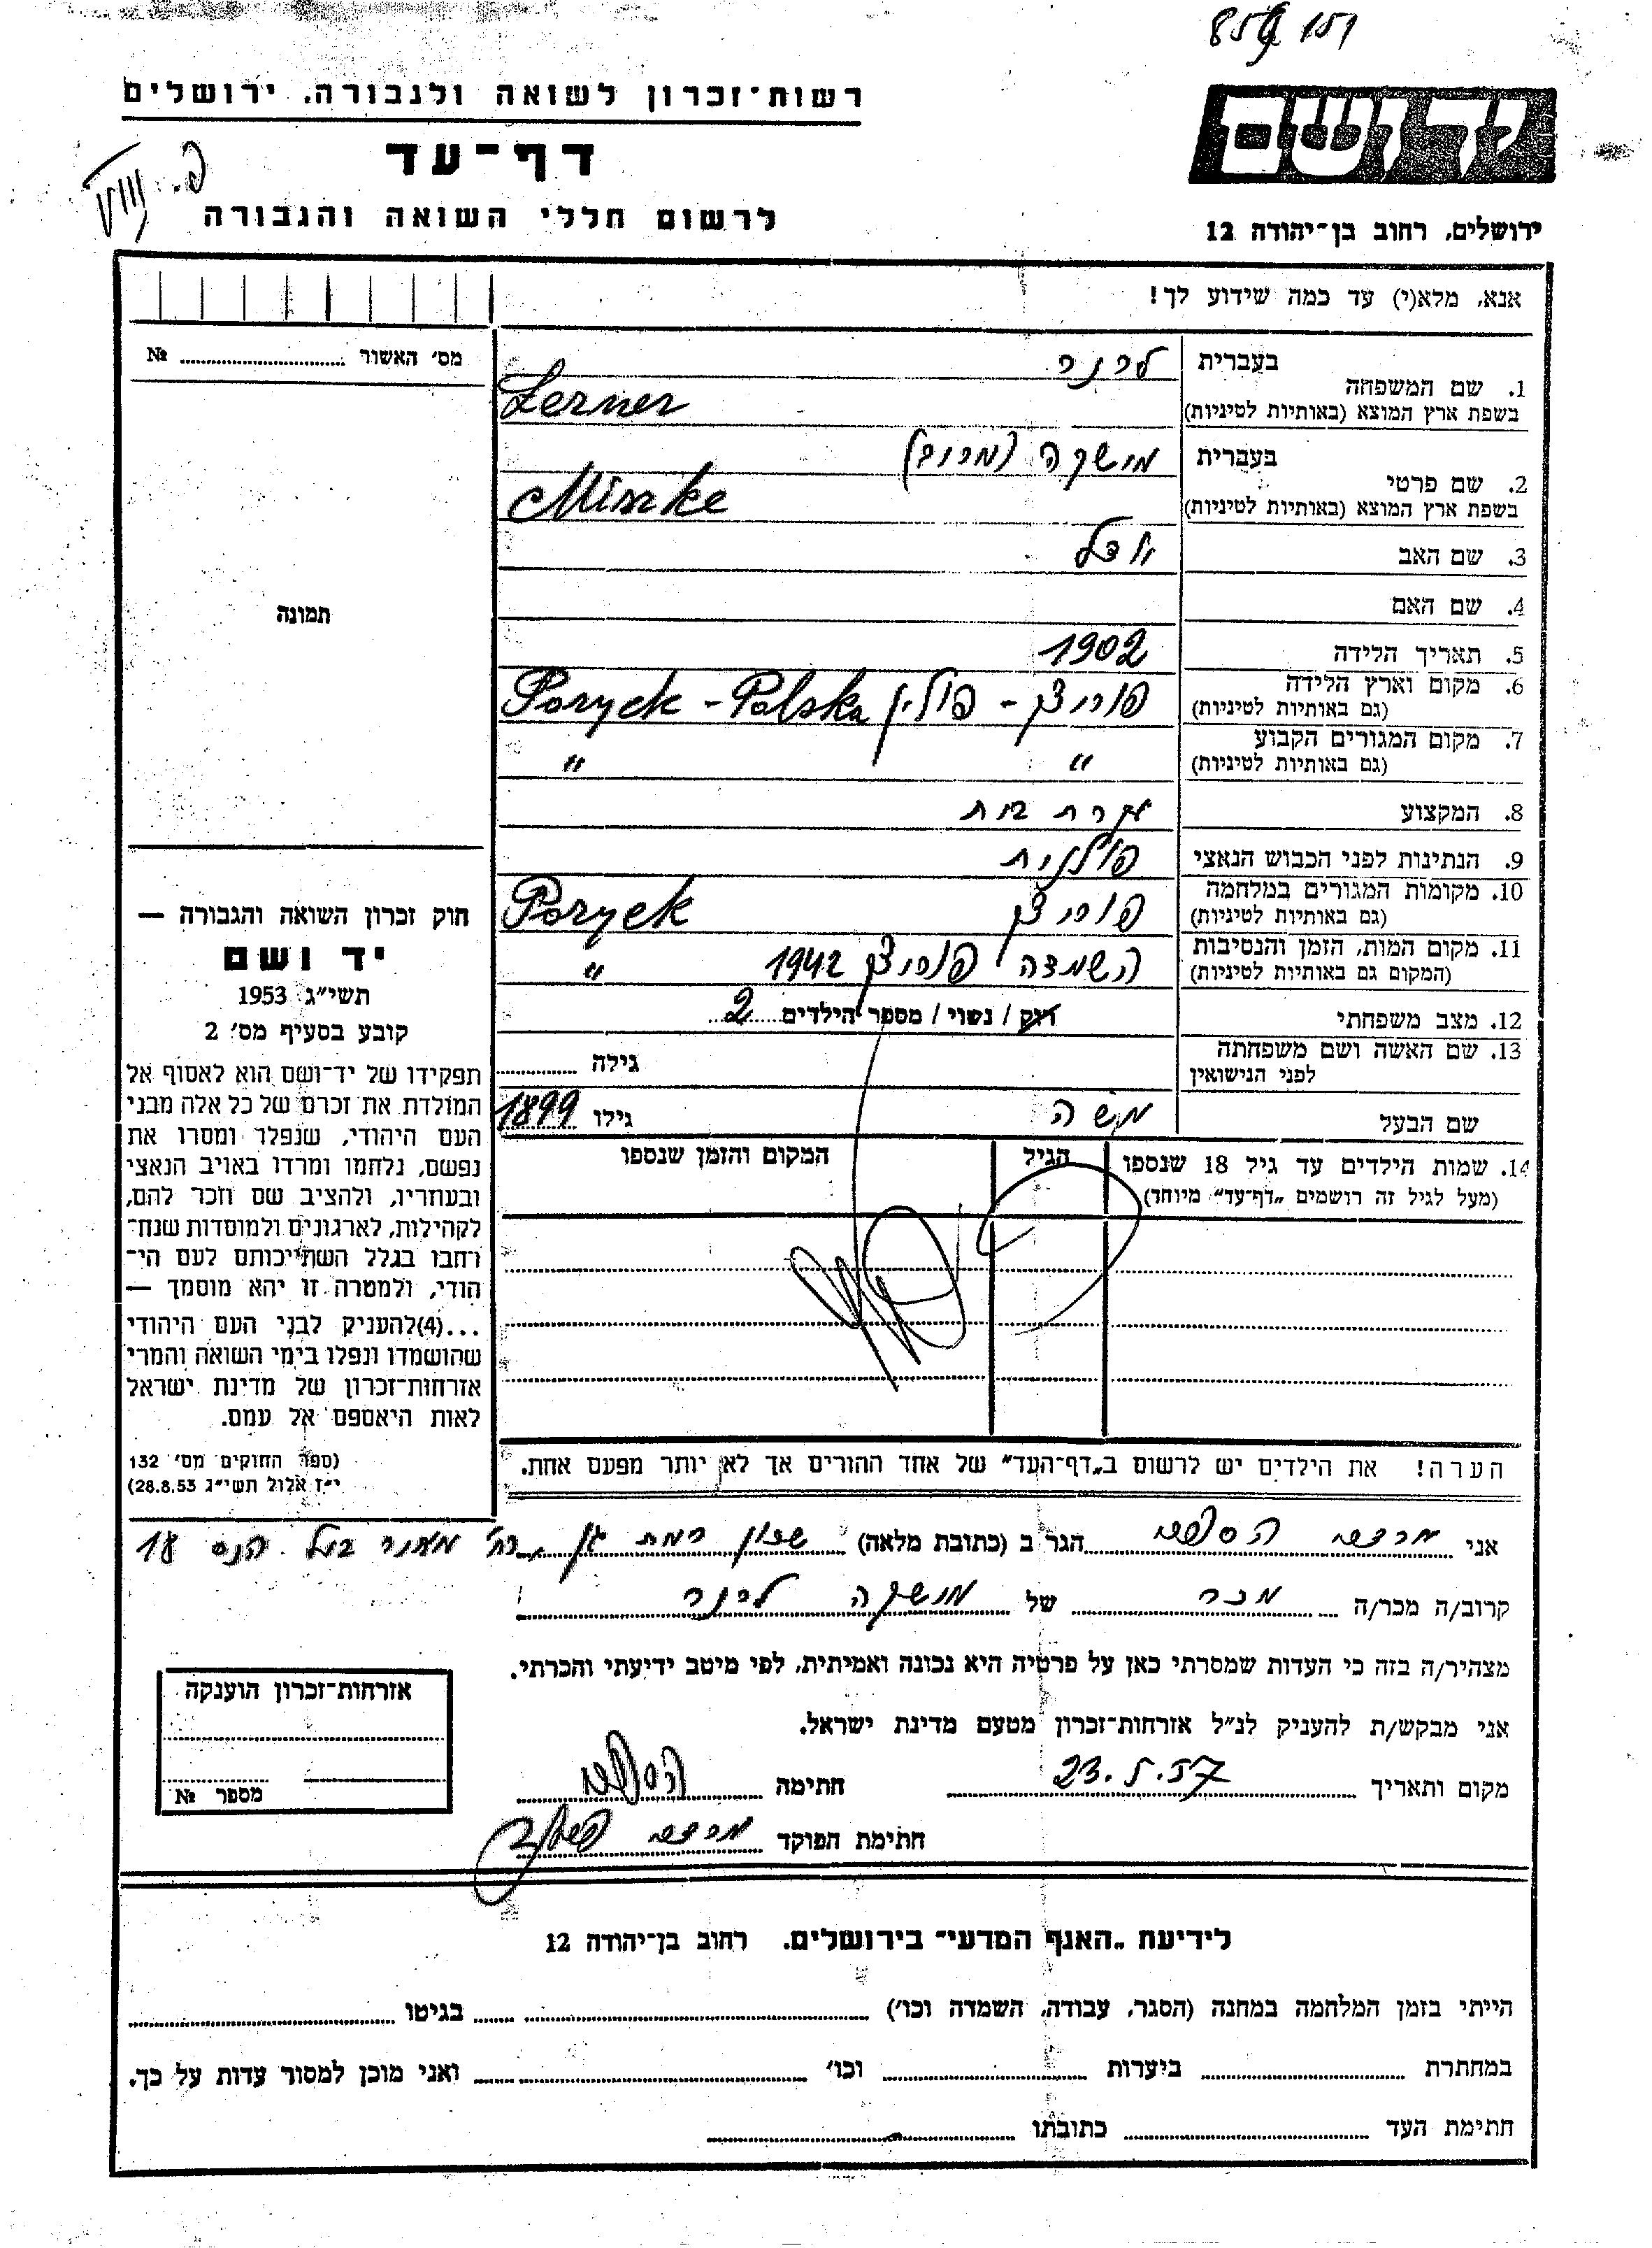 רשות־זכרון לשואה ולגבורה, ירושלים
דף־עד
לרשום חללי השואה והגבורה
ידושם
ירושלים, רחוב בן־יהודה 12
אנא, מלא(י) עד כמה שידוע לך!
מס׳ האשור ......... №
תמונה
1. שם המשפחה בעברית לרנר
בשפת ארץ המוצא (באותיות לטיניות) Lerner
2. שם פרטי בעברית מישקה
בשפת ארץ המוצא (באותיות לטיניות) Miszke
3. שם האב
4. שם האם
5. תאריך הלידה 1902
6. מקום וארץ הלידה (גם באותיות לטיניות) פוריצק - פולין Poryck - Polska
7. מקום המגורים הקבוע (גם באותיות לטיניות) " "
8. המקצוע עקרת בית
9. הנתינות לפני הכבוש הנאצי פולנית
10. מקומות המגורים במלחמה (גם באותיות לטיניות) פוריצק Poryck
11. מקום המות, הזמן והנסיבות (המקום גם באותיות לטיניות) השמדה פוריצק 1942 "
12. מצב משפחתי רוק / נשוי / מספר הילדים 2
13. שם האשה ושם משפחתה לפני הנישואין גילה .........
שם הבעל משה גילו 1899
14. שמות הילדים עד גיל 18 שנספו הגיל המקום והזמן שנספו
(מעל לגיל זה רושמים „דף־עד” מיוחד)
הערה! את הילדים יש לרשום ב„דף־העד” של אחד ההורים אך לא יותר מפעם אחת.
חוק זכרון השואה והגבורה —
יד ושם
תשי״ג 1953
קובע בסעיף מס׳ 2
תפקידו של יד־ושם הוא לאסוף אל
המולדת את זכרם של כל אלה מבני
העם היהודי, שנפלו ומסרו את
נפשם, נלחמו ומרדו באויב הנאצי
ובעוזריו, ולהציב שם וזכר להם,
לקהילות, לארגונים ולמוסדות שנח־
רבו בגלל השתייכותם לעם הי־
הודי, ולמטרה זו יהא מוסמך —
...(4)להעניק לבני העם היהודי
שהושמדו ונפלו בימי השואה והמרי
אזרחות־זכרון של מדינת ישראל
לאות היאספם אל עמם.
(ספר החוקים מס׳ 132
י״ז אלול תשי״ג 28.8.53)
אני מרדכי הגר ב (כתובת מלאה) רמת גן 18
קרוב/ה מכר/ה מכר של מישקה לרנר
מצהיר/ה בזה כי העדות שמסרתי כאן על פרטיה היא נכונה ואמיתית, לפי מיטב ידיעתי והכרתי.
אני מבקש/ת להעניק לנ״ל אזרחות־זכרון מטעם מדינת ישראל.
מקום ותאריך 23.5.57 חתימה
חתימת הפוקד מרדכי
אזרחות־זכרון הוענקה
מספר №
לידיעת „האגף המדעי״ בירושלים, רחוב בן־יהודה 12
הייתי בזמן המלחמה במחנה (הסגר, עבודה, השמדה וכו׳) ......... בגיטו .........
במחתרת ......... ביערות ......... וכו׳ ......... ואני מוכן למסור עדות על כך.
חתימת העד ......... כתובתו .........